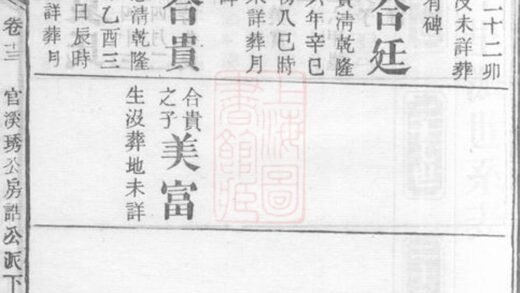 二十二卯
没未詳葬
有碑
合廷
清乾隆
年辛巳
初八巳時
未詳葬月
合貴
清乾隆
乙酉三
日辰時
詳葬月
合貴
之子
美富
生没葬地未詳
卷
官溪琇公房誥公派下
上海圖
書館藏